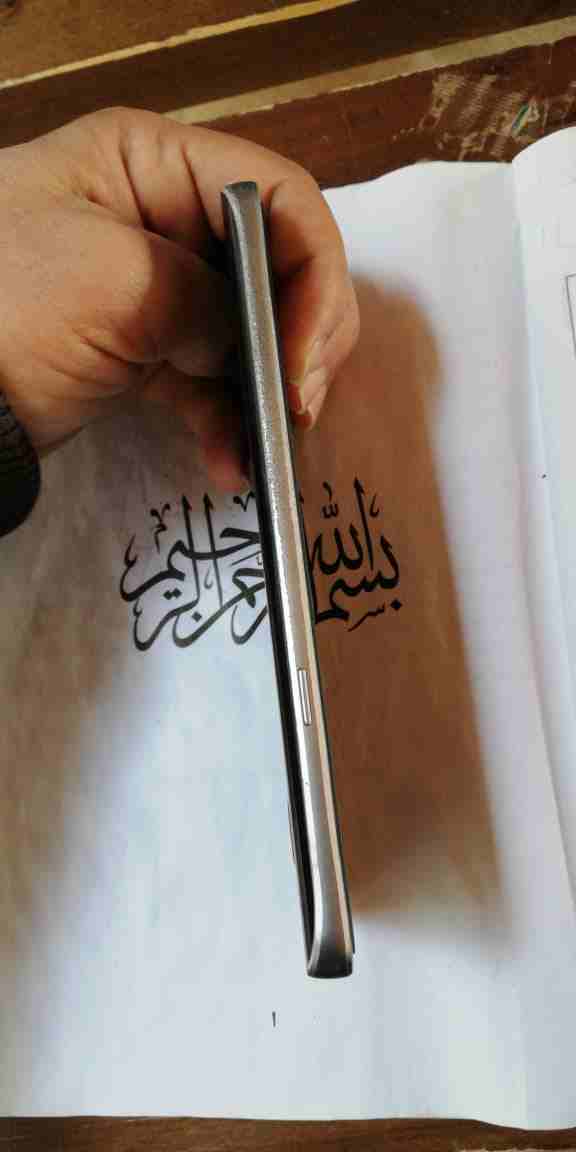 بسم الله الرحمن الرحيم
١